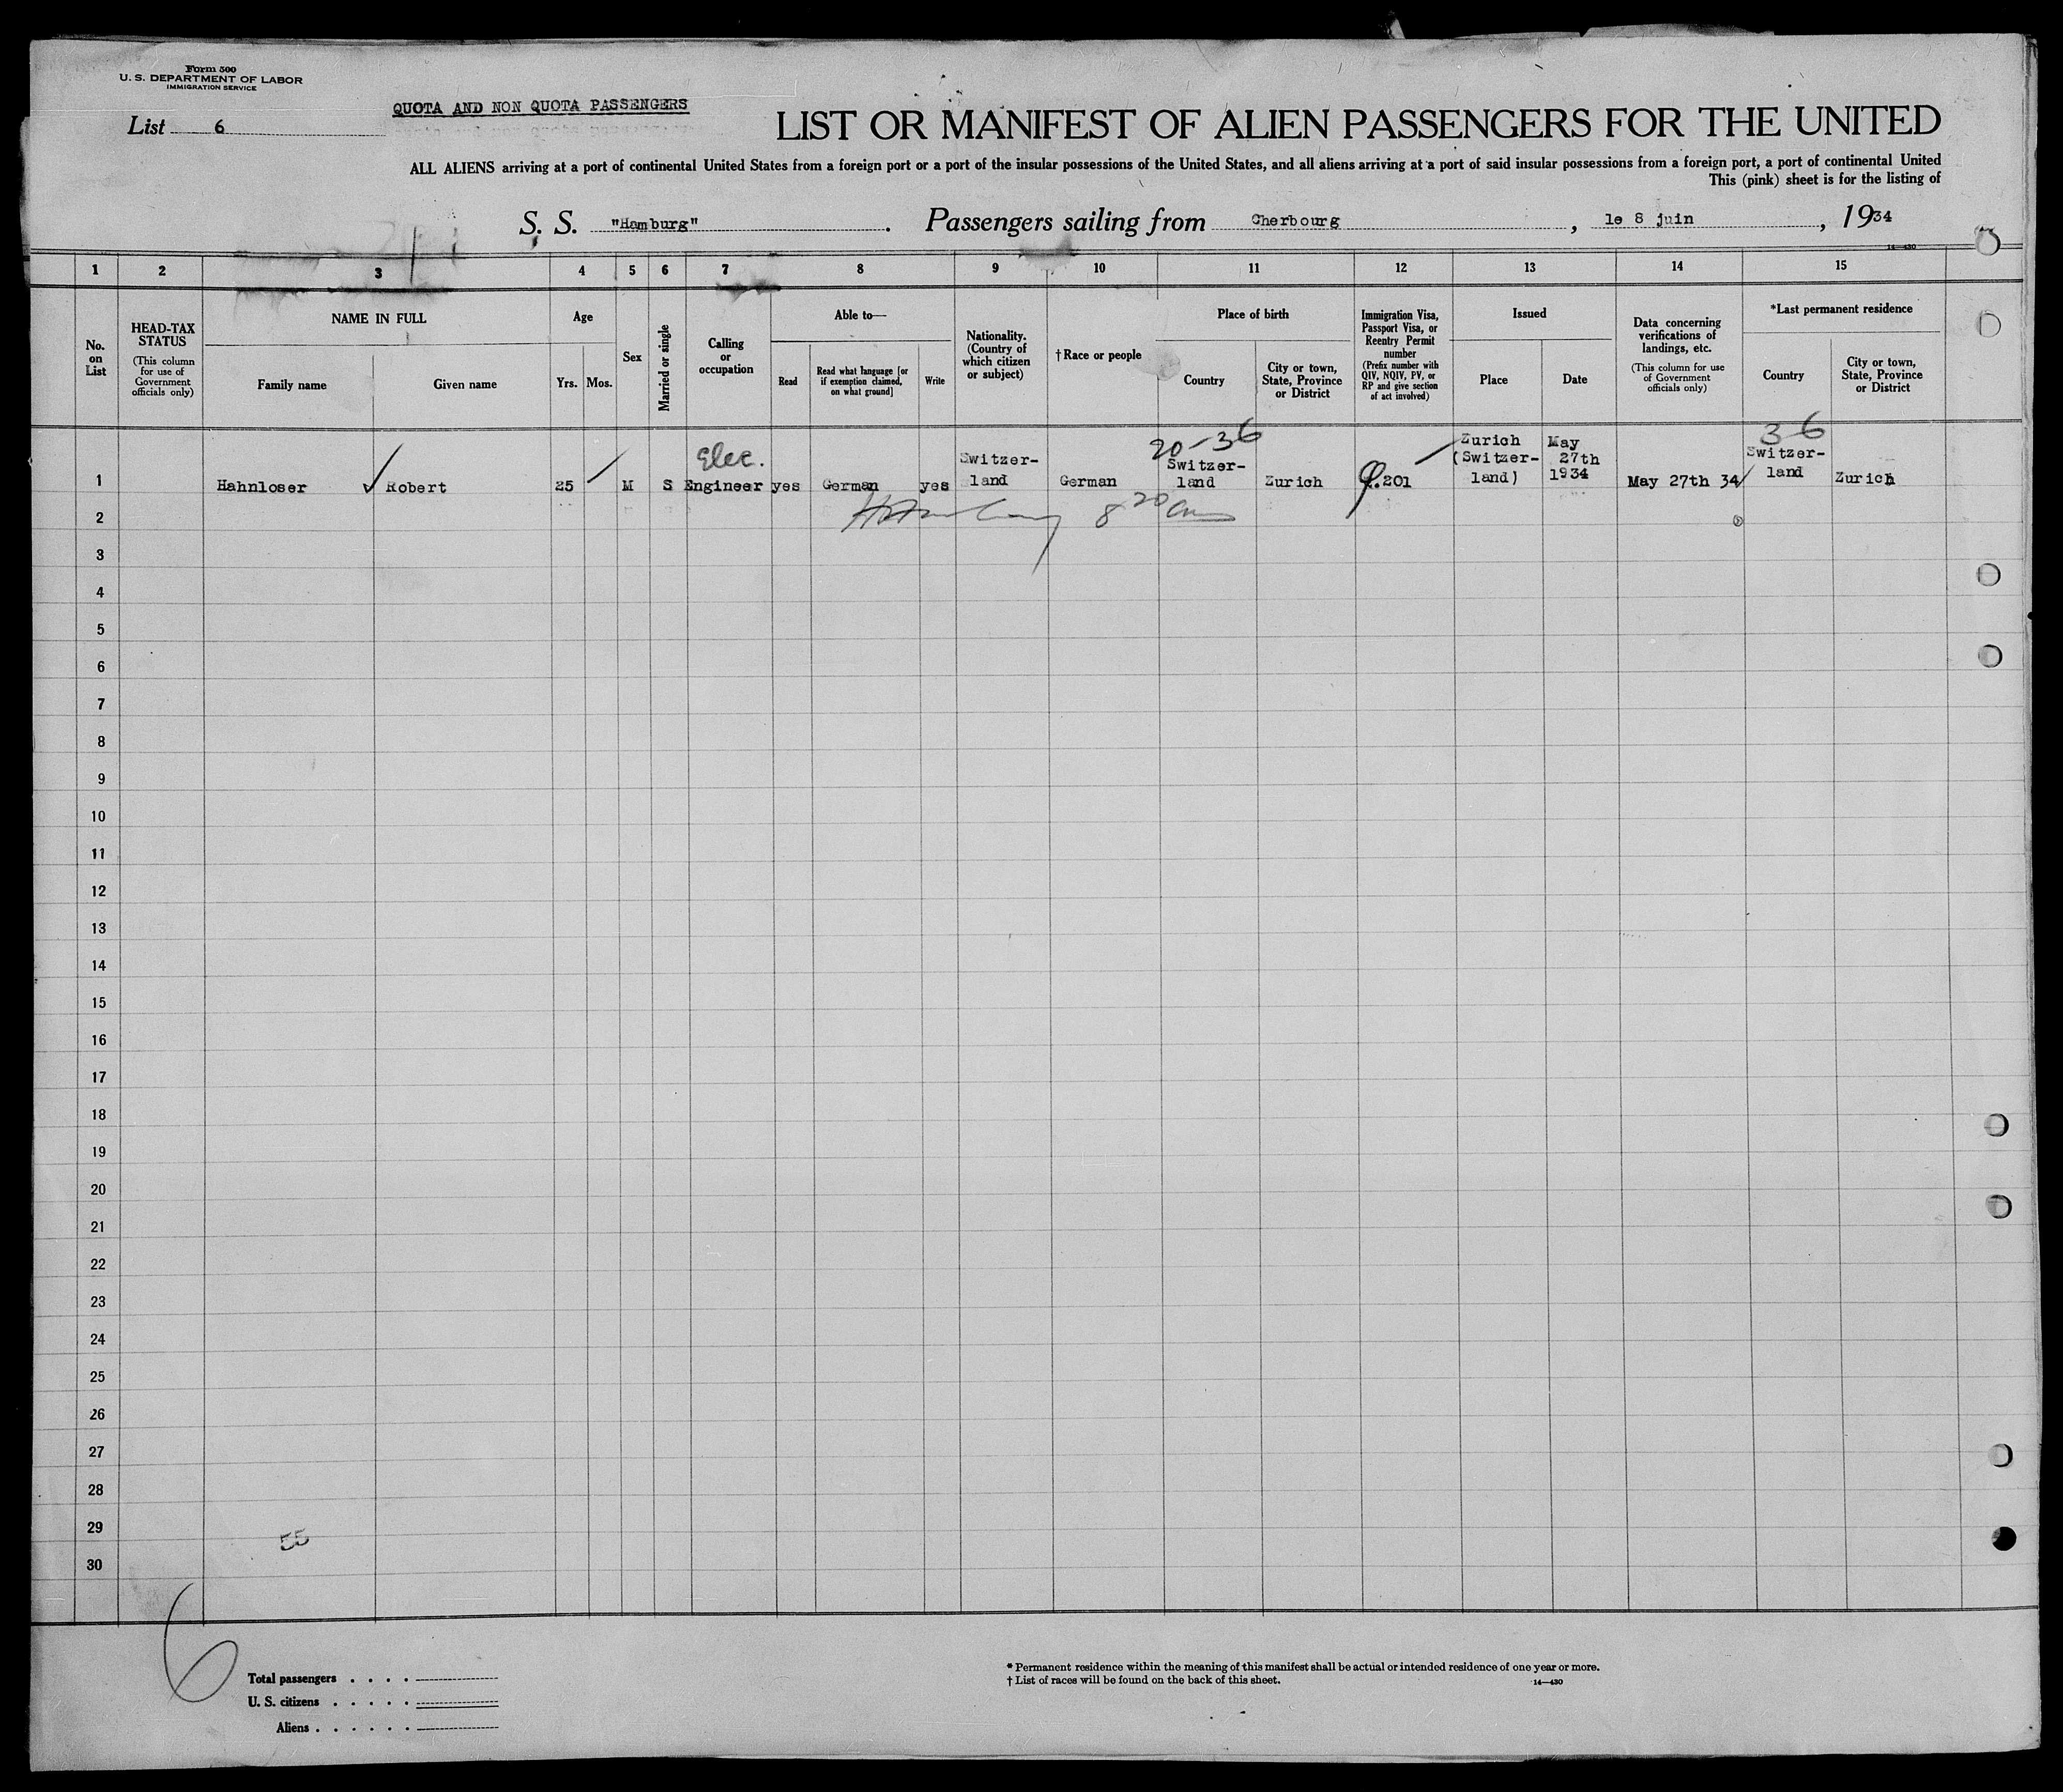 Form 500
U. S. DEPARTMENT OF LABOR
IMMIGRATION SERVICE
List 6
QUOTA AND NON QUOTA PASSENGERS
LIST OR MANIFEST OF ALIEN PASSENGERS FOR THE UNITED
ALL ALIENS arriving at a port of continental United States from a foreign port or a port of the insular possessions of the United States, and all aliens arriving at a port of said insular possessions from a foreign port, a port of continental United
This (pink) sheet is for the listing of
S. S. "Hamburg". Passengers sailing from Cherbourg, le 8 juin, 1934
14—430
1 2 3 4 5 6 7 8 9 10 11 12 13 14 15
No. on List
HEAD-TAX STATUS
(This column for use of Government officials only)
NAME IN FULL
Family name
Given name
Age
Yrs. Mos.
Sex
Married or single
Calling or occupation
Able to—
Read
Read what language [or if exemption claimed, on what ground]
Write
Nationality. (Country of which citizen or subject)
†Race or people
Place of birth
Country
City or town, State, Province or District
Immigration Visa, Passport Visa, or Reentry Permit number
(Prefix number with QIV, NQIV, PV, or RP and give section of act involved)
Issued
Place
Date
Data concerning verifications of landings, etc.
(This column for use of Government officials only)
*Last permanent residence
Country
City or town, State, Province or District
20-36
36
Elec.
1 Hahnloser Robert 25 M S Engineer yes German yes Switzer-land German Switzer-land Zurich Q.201 Zurich (Switzer-land) May 27th 1934 May 27th 34 Switzer-land Zurich
2 8 20
3
4
5
6
7
8
9
10
11
12
13
14
15
16
17
18
19
20
21
22
23
24
25
26
27
28
29
55
30
6
Total passengers . . . .
U. S. citizens . . . . .
Aliens . . . . . .
* Permanent residence within the meaning of this manifest shall be actual or intended residence of one year or more.
† List of races will be found on the back of this sheet.
14—430